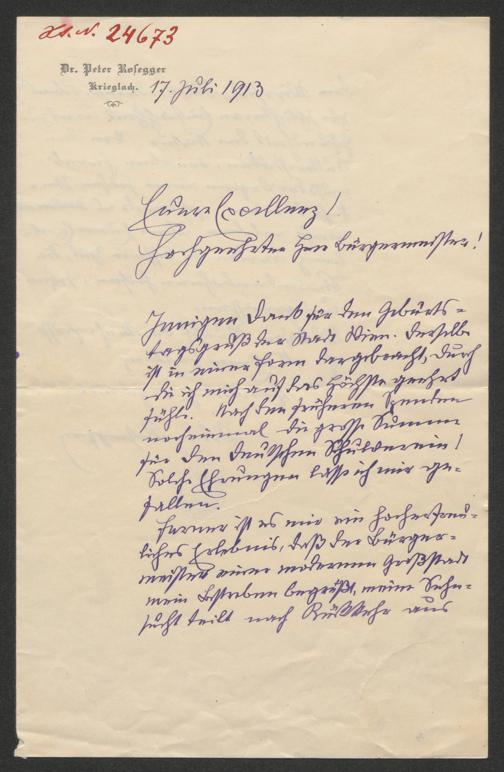 H.I.N. 24673
Dr. Peter Rosegger
Krieglach.
17. Juli 1913
Euere Excellenz!
Hochgeehrter Herr Bürgermeister!
Innigen Dank für den Geburts-
tagsgruß der Stadt Wien. Derselbe
ist in einer Form dargebracht, durch
die ich mich auf das Höchste geehrt
fühle. Nach den früheren Spenden
nocheinmal die große Summe
für den deutschen Schulverein!
Solche Ehrungen lasse ich mir ge-
fallen.
Ferner ist es mir ein hocherfreu-
liches Erlebnis, daß der Bürger-
meister einer modernen Großstadt
mein Bestreben begrüßt, meine Sehn-
sucht teilt nach Rückkehr aus